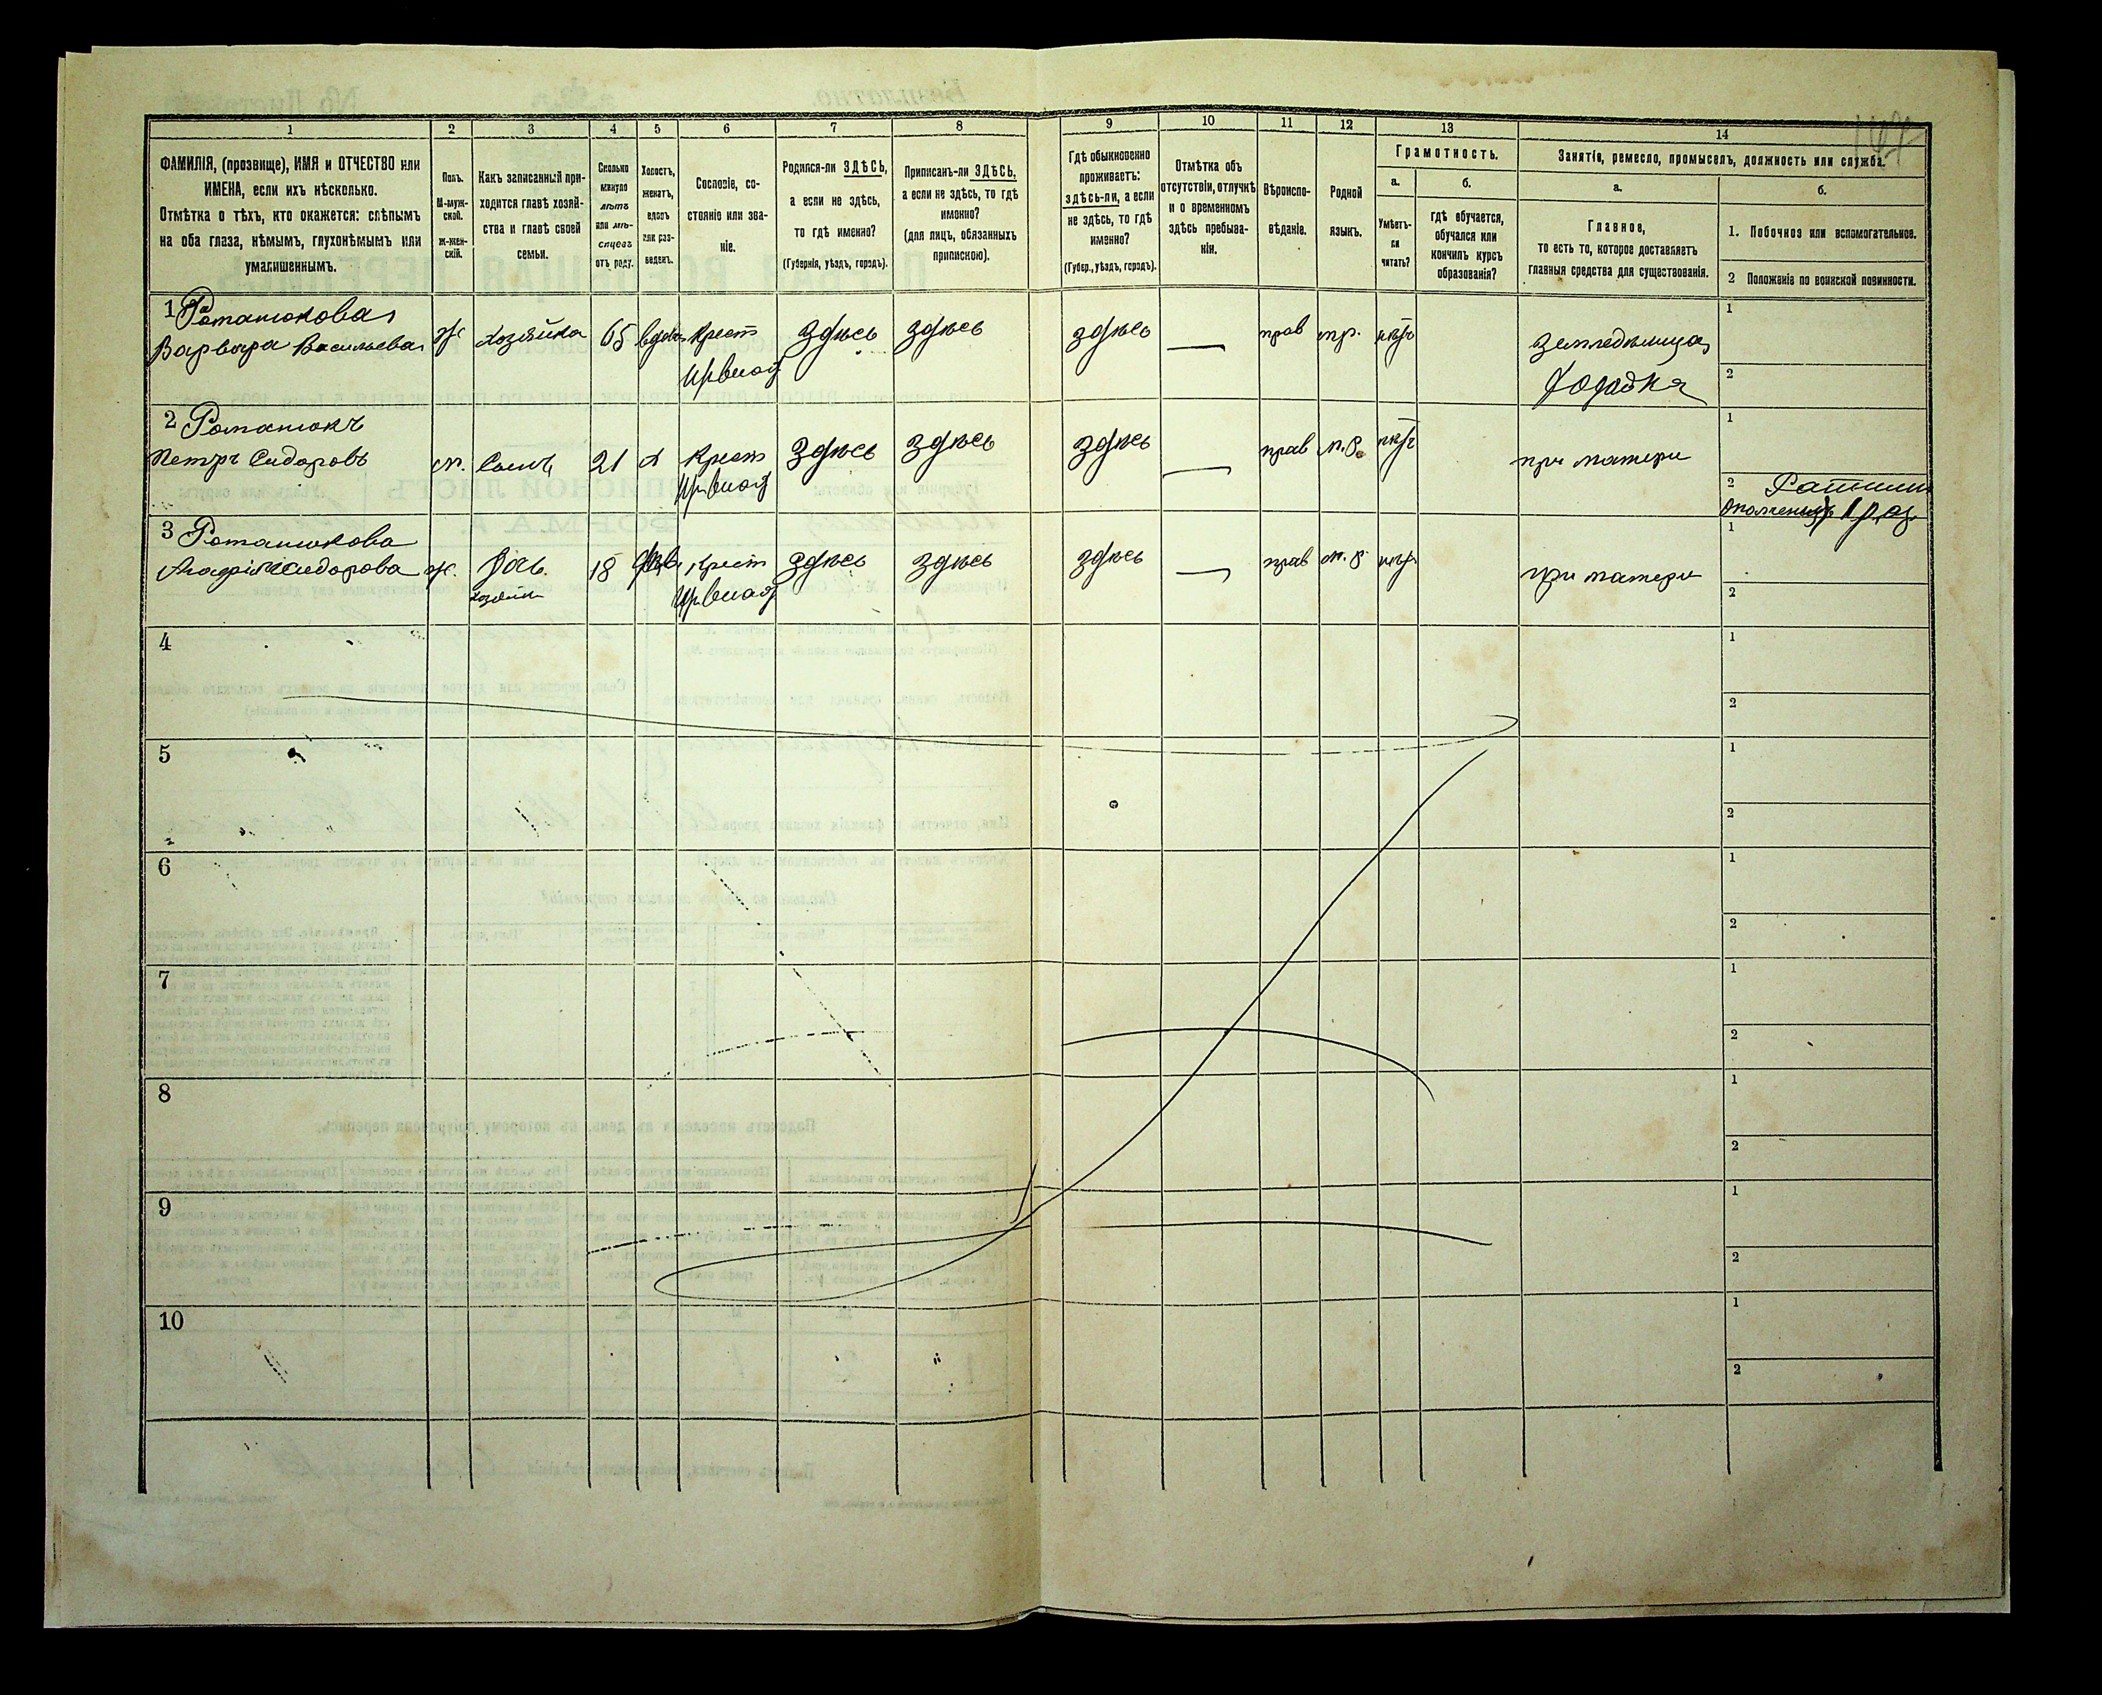 1
2
3
4
5
6
7
8
9
10
11
12
13
14
ФАМИЛІЯ, (прозвище), ИМЯ и ОТЧЕСТВО или
ИМЕНА, если ихъ нѣсколько.
Отмѣтка о тѣхъ, кто окажется: слѣпымъ
на оба глаза, нѣмымъ, глухонѣмымъ или
умалишеннымъ.
Полъ.
М-муж-
ской.
Ж-жен-
скій.
Какъ записанный при-
ходится главѣ хозяй-
ства и главѣ своей
семьи.
Сколько
минуло
лѣтъ
или мѣ-
сяцевъ
отъ роду.
Холостъ,
женатъ,
вдовъ
или раз-
веденъ.
Сословіе, со-
стояніе или зва-
ніе.
Родился-ли ЗДѢСЬ,
а если не здѣсь,
то гдѣ именно?
(Губернія, уѣздъ, городъ).
Приписанъ-ли ЗДѢСЬ,
а если не здѣсь, то гдѣ
именно?
(для лицъ, обязанныхъ
припискою).
Гдѣ обыкновенно
проживаетъ:
здѣсь-ли, а если
не здѣсь, то гдѣ
именно?
(Губер., уѣздъ, городъ).
Отмѣтка объ
отсутствіи, отлучкѣ
и о временномъ
здѣсь пребыва-
ніи.
Вѣроиспо-
вѣданіе.
Родной
языкъ.
Грамотность.
а.
Умѣетъ-
ли
читать?
б.
гдѣ обучается,
обучался или
кончилъ курсъ
образованія?
Занятіе, ремесло, промыселъ, должность или служба.
а.
Главное,
то есть то, которое доставляетъ
главныя средства для существованія.
б.
1. Побочное или вспомогательное.
2 Положеніе по воинской повинности.
1 Романюкова
Варвара Васильева ж хозяйка 65 вдова Крест здѣсь здѣсь здѣсь — прав нѣтъ земледѣлица 1
2
2 Романюкъ
Петръ Сидоровъ м. Сынъ 21 х Крест Здѣсь здѣсь здѣсь — прав м.р. нѣтъ при матери 1
2 Ратникъ
ополченія 1 раз
3 Романюкова
Сидорова ж. Дочь 18 дѣв Крест Здѣсь здѣсь здѣсь — прав м.р. нѣтъ при матери 1
хозяйк
2
4
1
2
5
1
2
6
1
2
7
1
2
8
1
2
9
1
2
10
1
2